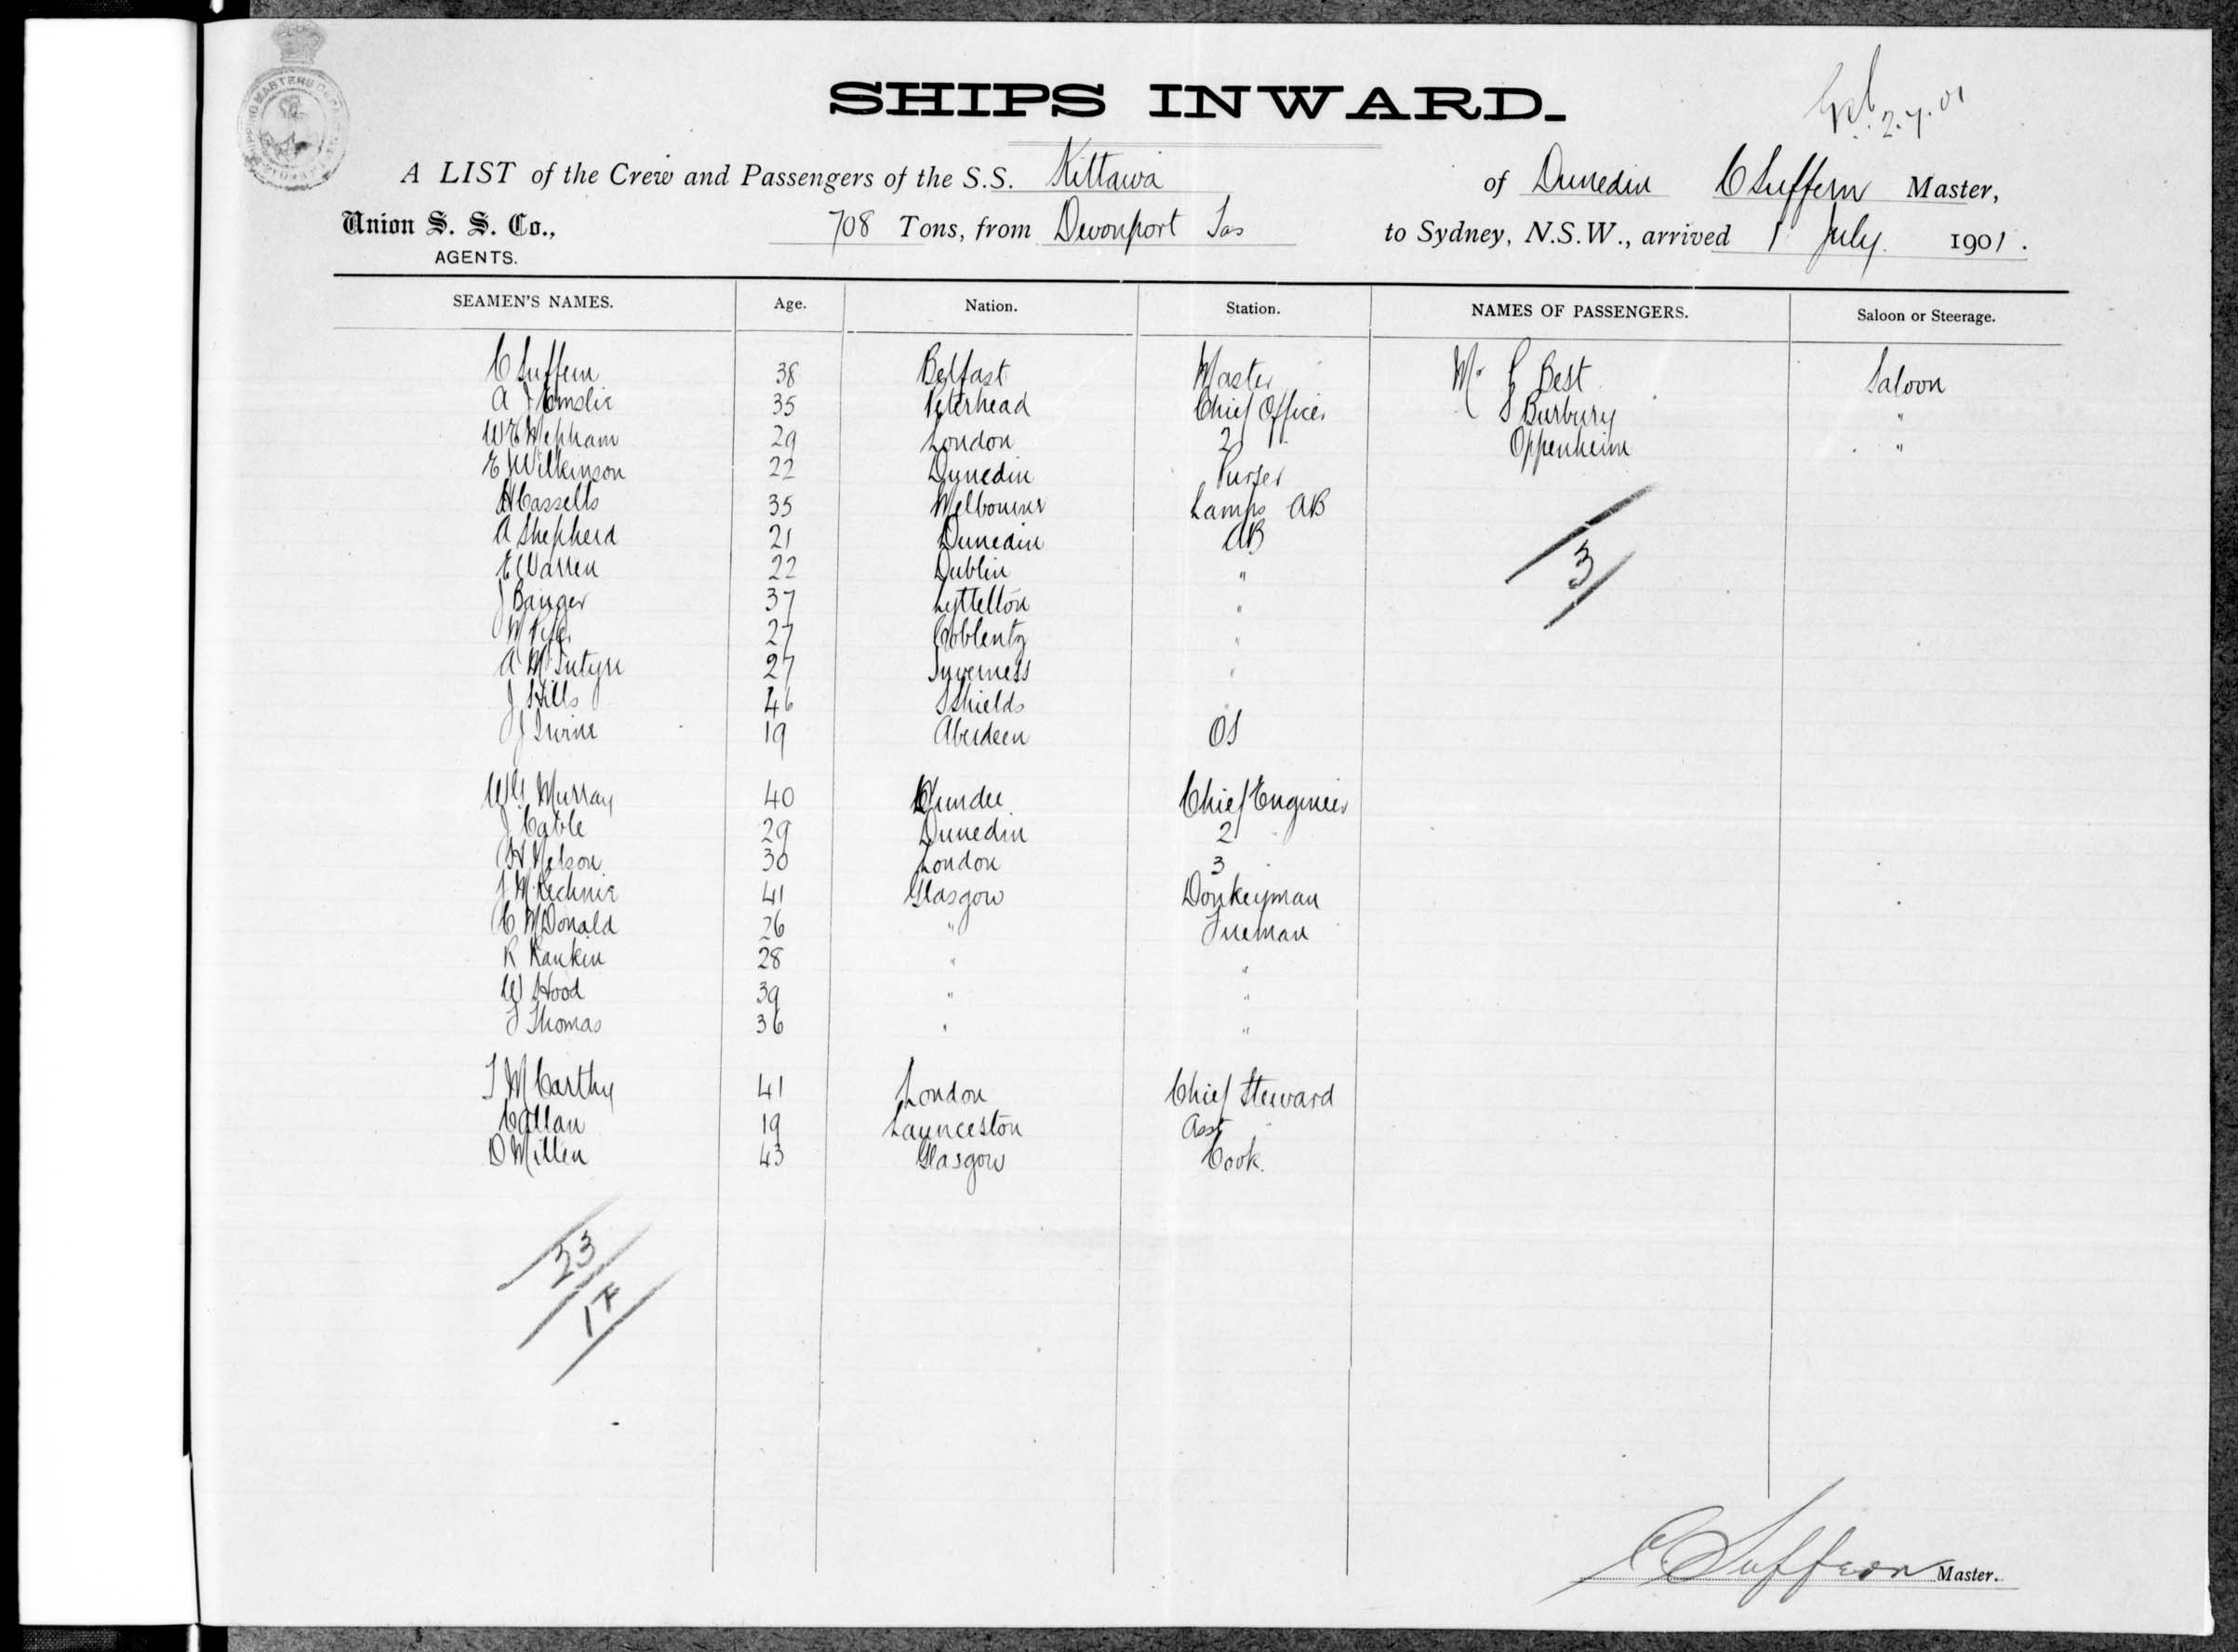 SHIPS INWARD.
2.7.01
A LIST of the Crew and Passengers of the S.S. Kittawa of Dunedin C Suffern Master,
Union S. S. Co., 708 Tons, from Devonport Tas to Sydney, N.S.W., arrived 1 July 1901.
AGENTS.
SEAMEN'S NAMES. Age. Nation. Station. NAMES OF PASSENGERS. Saloon or Steerage.
C Suffern 38 Belfast Master Mr G Best Saloon
A J Emslie 35 Peterhead Chief Officer S Burbury "
W E Mepham 29 London 2 " Oppenheim "
E J Wilkinson 22 Dunedin Purser
H Cassells 35 Melbourne Lamps AB
A Shepherd 21 Dunedin AB
E Warren 22 Dublin "
J Banger 37 Lyttelton "
M 27 Coblentz "
A McIntyre 27 Inverness "
J Hills 46 S Shields "
J Irvine 19 Aberdeen OS
3
Murray 40 Dundee Chief Engineer
J Cable 29 Dunedin 2 "
H Nelson 30 London 3 "
J McKechnie 41 Glasgow Donkeyman
C McDonald 26 " Fireman
R Rankin 28 " "
W Hood 39 " "
J Thomas 36 " "
J McCarthy 41 London Chief Steward
C Allan 19 Launceston Asst "
D Millen 43 Glasgow Cook.
23
17
C Suffern Master.